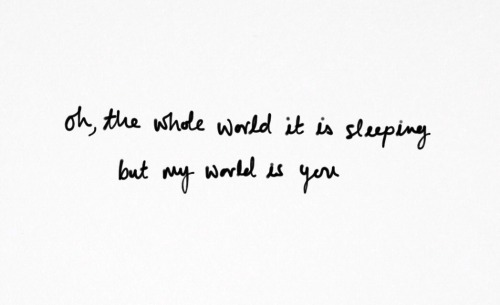 oh, the whole world it is sleeping
but my world is you